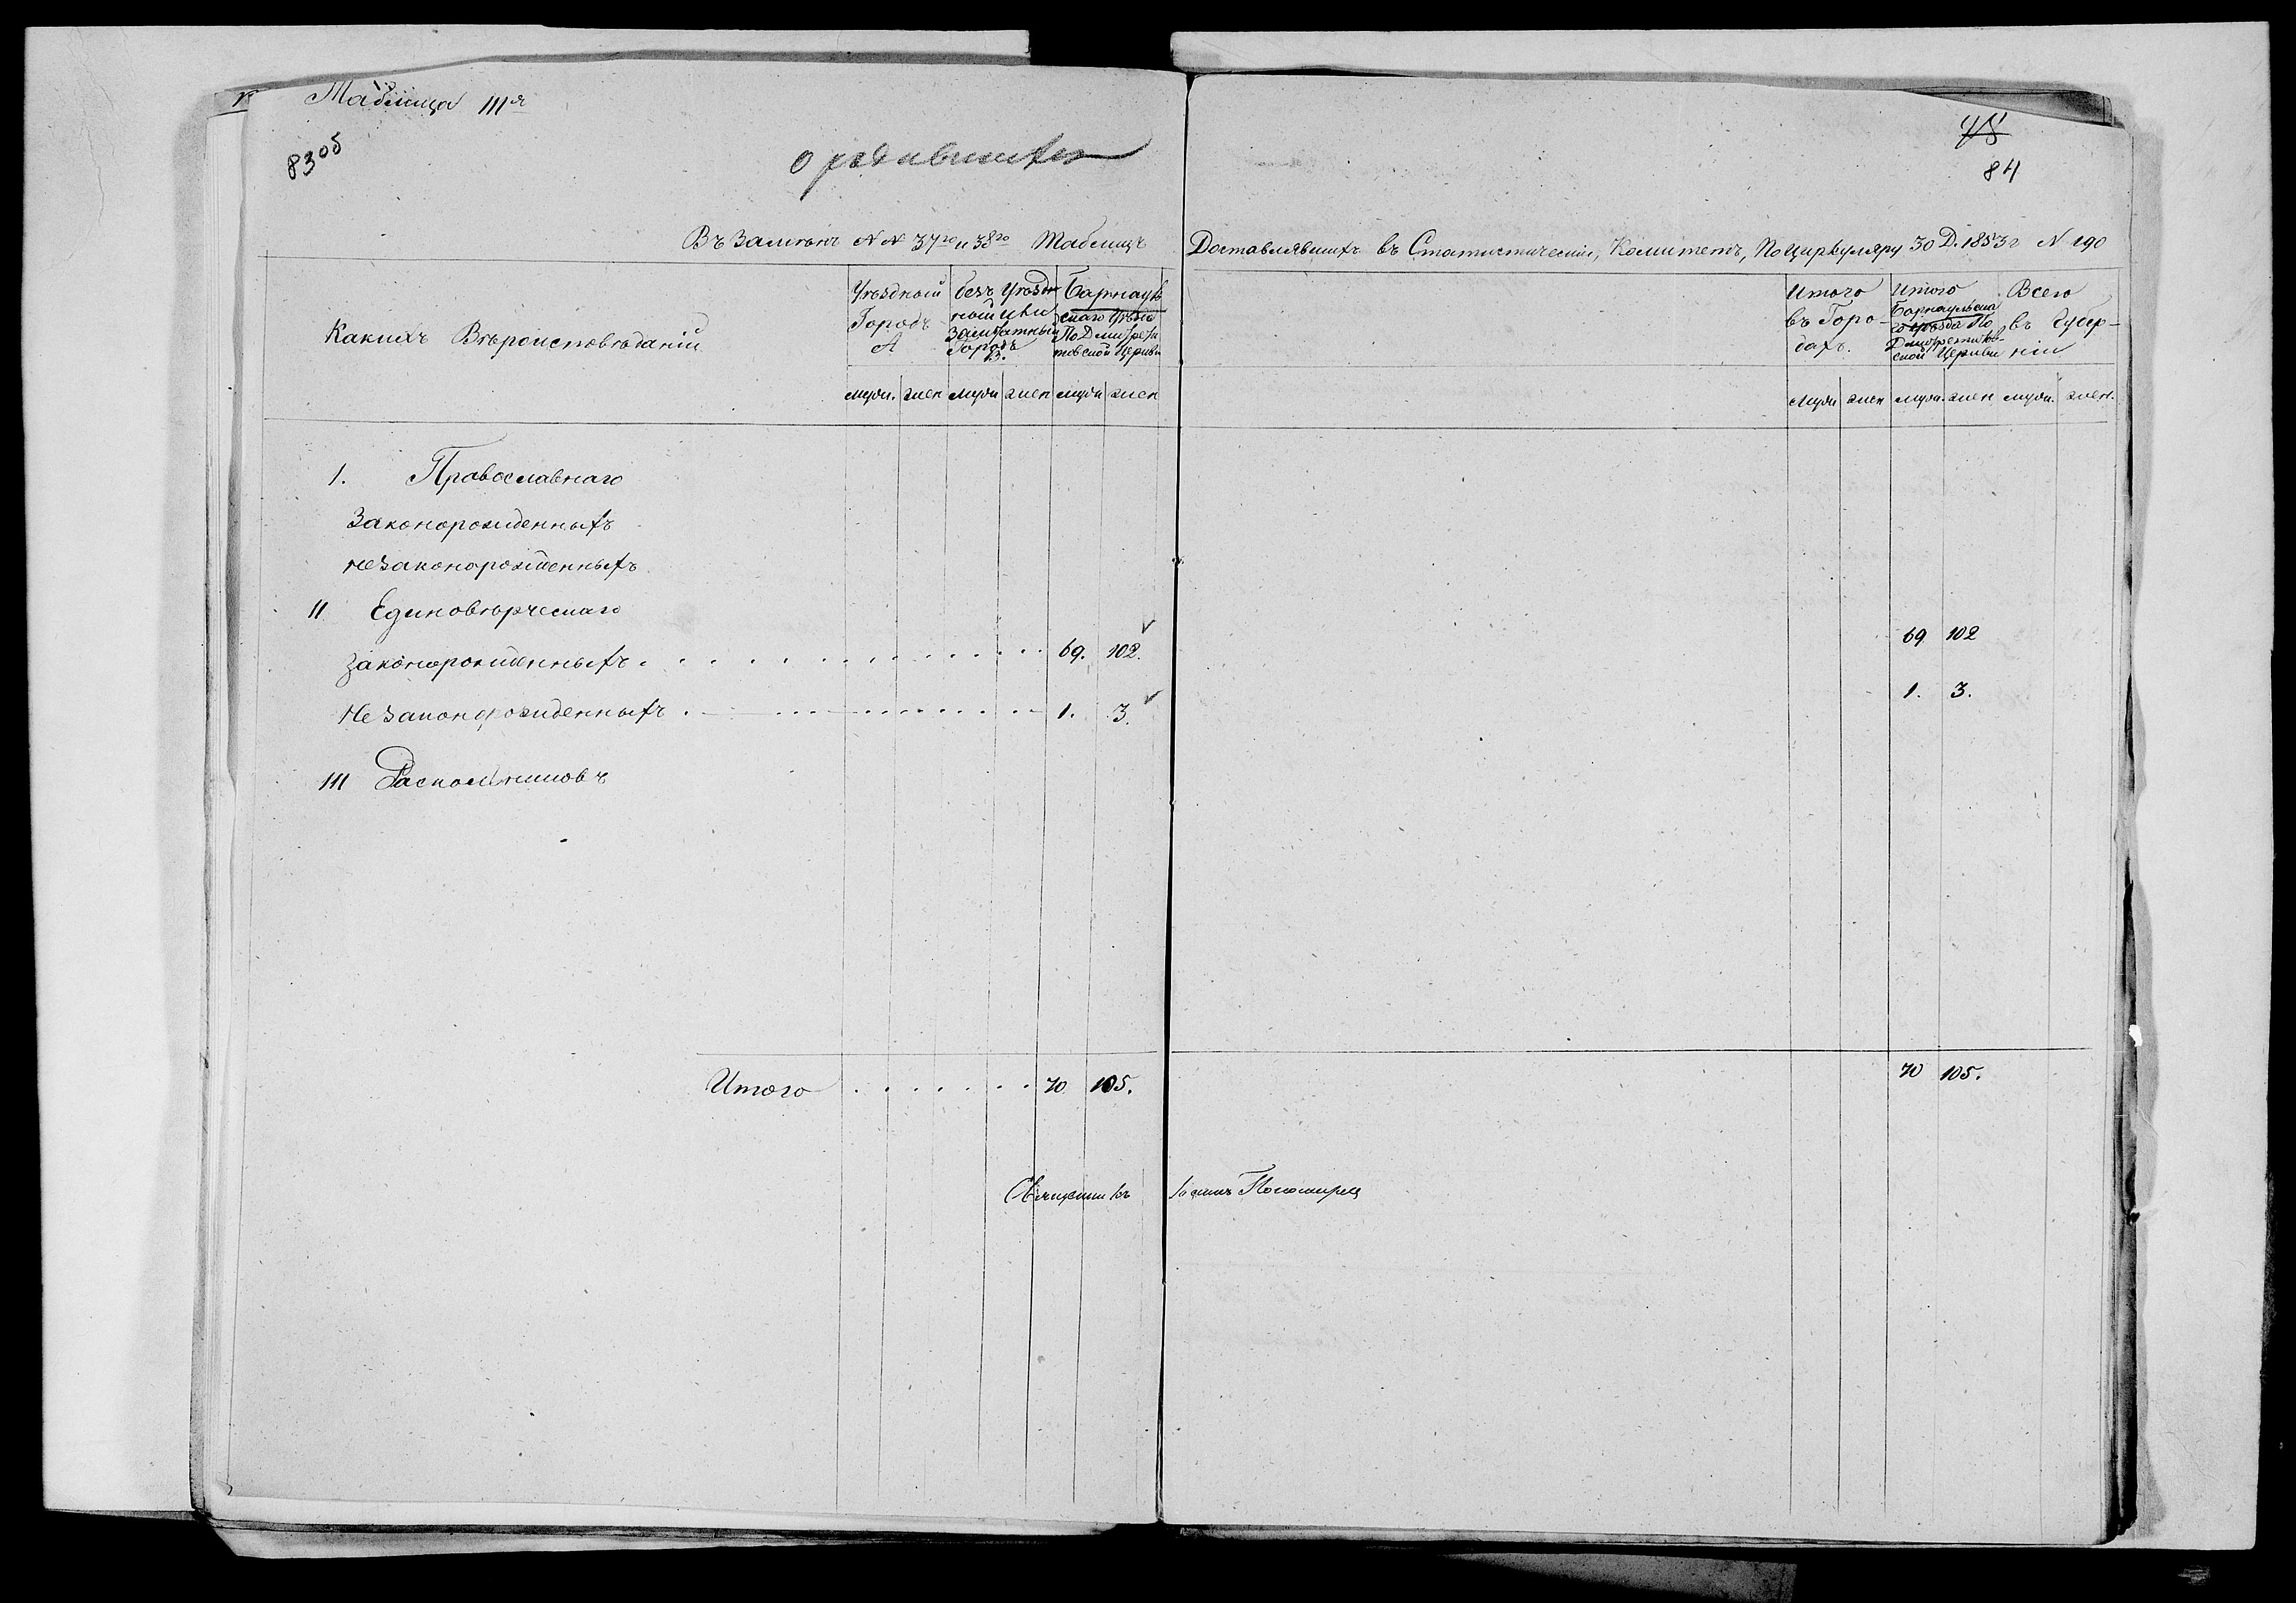 Таблица III я
83 об
о родившихся
75
84
Въ Замѣнъ №№ 37го и 38го Таблицъ Доставлявшихъ въ Статистическій, Комитетъ, По Циркуляру 30 Д. 1853 г № 190
Какихъ Вѣроисповѣданій
Уѣздный Городъ А
безъ Уѣздный Заштатный Городъ В.
Барнаульскаго Уѣзда По Церкви
Итого въ Горо-дахъ.
Итого Барнаульскаго Уѣзда По Церкви
Всего въ Губер-ніи
муж. жен муж жен муж жен
муж жен муж. жен муж. жен.
1. Православнаго
Законорожденныхъ
незаконорожденныхъ
II Единовѣрческаго
законорожденныхъ 69. 102. 69 102
Незаконорожденныхъ 1. 3. 1. 3.
III Раскольниковъ
Итого 70 105. 70 105.
Священникъ Іоаннъ